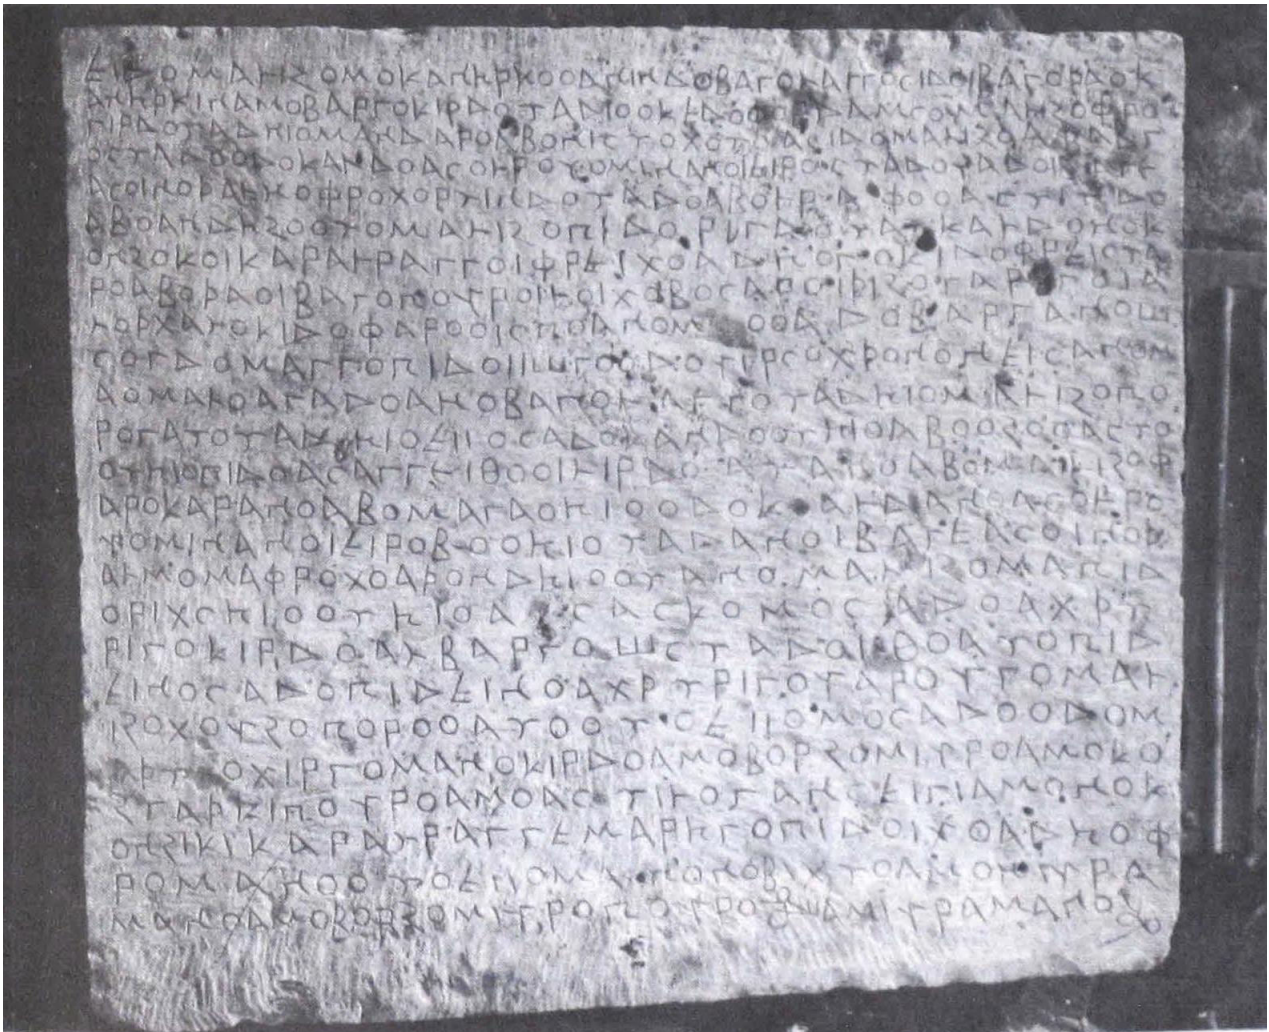 ΕΙΔΟΜΑΛΙΖΟΜΟΚΑΝΗϷΚΟΟΑΝΙΝΔΟΒΑΓΟΛΑΓΓΟΣΙΔΟΙΒΑΓΟϷΑΟΚ
ΑΝΗϷΚΙΝΑΜΟΒΑΡΓΟΚΙΡΔΟΤΑΔΙΟΟΚΕΔΟΦΟΡΔΑΜΣΟΜΑΛΙΖΟΦΡΟ
ΓΙΡΔΟΤΑΔΗΙΟΜΑΝΔΑΡΟΑΒΟΝΙΣΤΟΧΟΤΟΑΣΙΔΟΜΑΛΙΖΟΑΒΑΒΓ
ΟΣΤΑΔΟΟΔΟΚΑΛΔΟΑΣΟΛΡΟΥΟΜΙΝΑΝΟΙΕΙΡΟΣΤΑΔΟΤΑΔΟΙΒΑΓΕ
ΑΣΟΙΝΟϷΑΛΜΟΦΡΟΧΟΡΤΙΝΔΟΤΑΔΟΑΒΟΛΡΑΦΟΟΑΣΤΙΝΔΟ
ΑΒΟΑΝΔΗΖΟΟΤΟΜΑΛΙΖΟΠΙΔΟΡΙΓΔΟΤΑΚΑΛΔΟΝΟΚ
ΟΝΖΟΚΟΙΚΑΡΑΛΡΑΓΓΟΙΦΡΕΙΧΟΑΔΗΟΓΟΚΙΔΟΦΡΕΙΣΤΑ
ΡΟΑΒΟϷΑΟΙΒΑΓΟΠΟΥΡΟΙΛΟΙΧΟΒΟΣΑΡΟΙϷΙΖΟΓΑΡΓΟΙΑ
ΛΟϷΧΑΛΟΚΙΔΟΦΑΡΟΟΙΣΠΟΑΝΟΜΟΟΟΑΔΟΒΑΡΓΑΝΟΩ
ΣΟΓΔΟΜΑΓΓΟΠΙΔΟΙΩΓΟΟΔΟΥΙΡΣΟΧϷΟΝΟΝΕΙΣΑΝΟΜ
ΑΟΜΑΛΟΑΓΑΔΟΑΒΟΒΑΓΟΛΑΓΓΟΤΑΔΗΙΟΜΑΛΙΖΟΠΟ
ΡΟΓΑΤΟΤΑΔΗΙΟΕΙΙΟΣΑΔΟΚΑΝΔΟΟΤΗΙΟΑΒΟΟΖΟΟΑΣΤΟ
ΟΤΗΙΟΠΙΔΟΑΣΑΓΓΕΙΘΟΟΙΛΙΡΔΟΑΤΑΝΟΑΒΟΜΑΛΙΖΟΦ
ΑΡΟΚΑΡΑΝΟΑΒΟΜΑΓΑΟΗΙΟΟΔΟΚΑΛΔΑΝΟΑΣΟΛΡΟ
ΥΟΜΙΝΑΝΟΙΕΙΡΟΒΟΟΗΙΟΤΑΔΑΝΟΙΒΑΓΕΑΣΟΙΝΟϷ
ΑΛΜΟΜΑΦΡΟΧΟΑϷΟΝΔΗΙΟΟΤΑΝΟΜΑΛΙΖΟΜΑΠΙΔ
ΟΡΙΧΣΗΙΟΟΤΗΙΟΑΣΑΣΚΟΜΟΣΑΔΟΑΧϷΤ
ΡΙΓΟΚΙΡΔΟΑΛΒΑΡΓΟΩΣΤΑΔΟΙΘΟΑΤΟΠΙΔ
ΕΙΝΟΣΑΔΟΠΙΔΕΙΝΟΑΧϷΤΡΙΓΟΥΑΡΟΥΓΓΟΜΑΛ
ΙΖΟΧΟΥΖΟΠΟΡΟΟΑΤΟΟΤΟΕΙΙΟΜΟΣΑΔΟΟΔΟΜ
ΑϷΤΟΧΙΡΓΟΜΑΝΟΚΙΡΔΟΑΜΟΒΟΡΖΟΜΙΥΡΟΑΜΟΚΟ
ΖΓΑϷΚΙΠΟΥΡΟΑΜΟΑΣΤΙΛΟΓΑΝΣΕΙΓΙΑΜΟΝΟΚ
ΟΝΖΙΚΙΚΑΡΑΛΡΑΓΓΕΜΑΡΗΓΟΠΙΔΟΙΧΟΑΔΗΟΦ
ΡΟΜΑΝΟΟΤΟΕΙΙΟΜΑΝΟΝΟΒΙΧΤΟΑΜΟΜΙΥΡΑ
ΜΑΝΟΑΜΟΒΟΡΖΟΜΙΥΡΟΠΟΥΡΟΑΜΙΥΡΑΜΑΝΟ